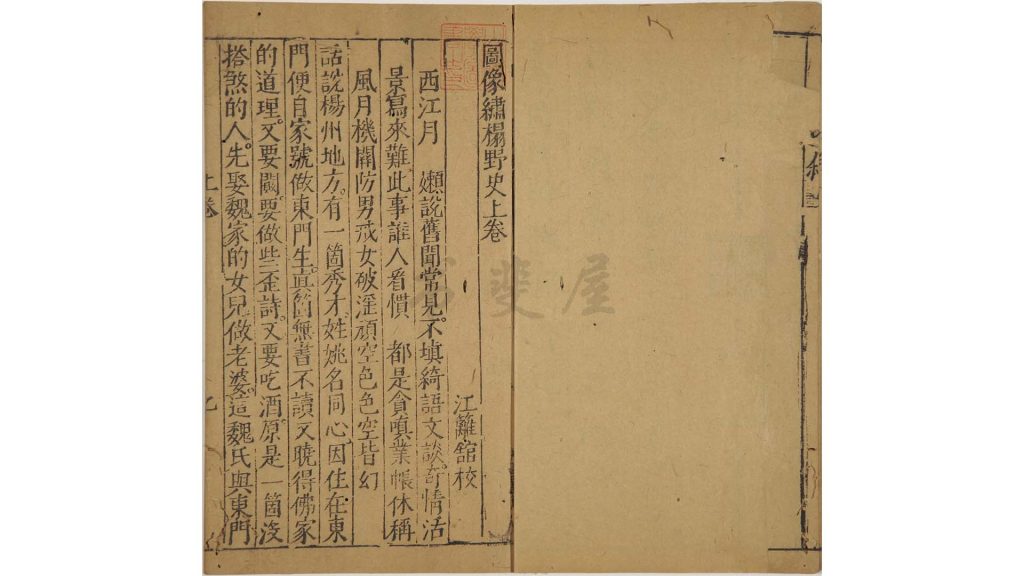 圖像繡榻野史上卷
江籬舘校
西江月　嬾說舊聞常見。不填綺語文談。奇情活
景寫來難此事誰人看慣　都是貪嗔業帳休稱
風月機關防男戒女破淫頑空色色空皆幻
話說楊州地方。有一箇秀才。姓姚名同心。因住在東
門便自家號做東門生。真箇無書不讀又曉得佛家
的道理。又要闞。要做些歪詩。又要吃酒。原是一箇沒
搭煞的人。先娶魏家的女兒做老婆。這魏氏與東門
上卷
斐屋